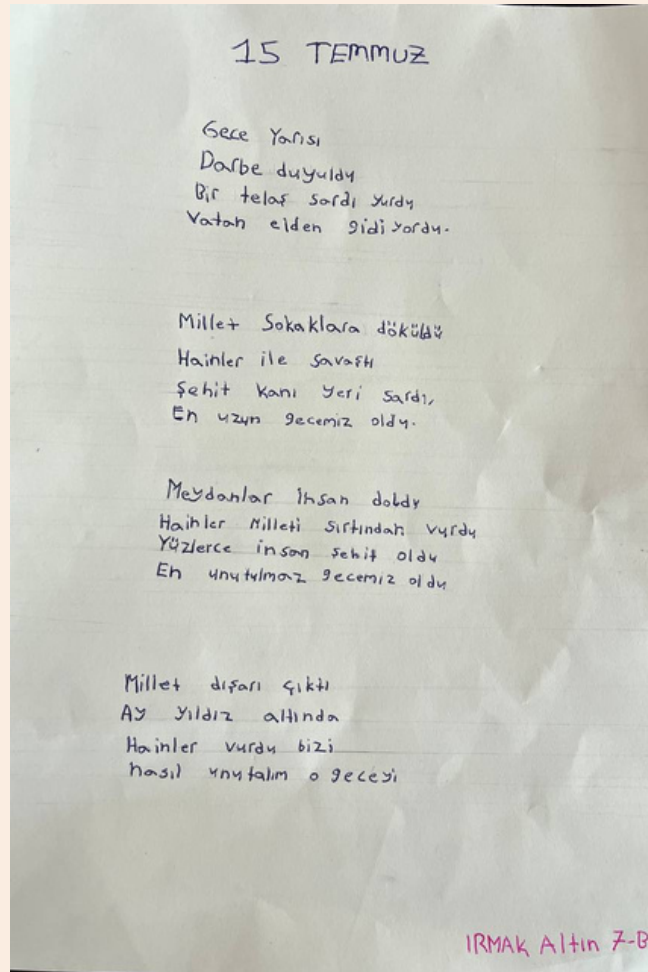 15 TEMMUZ
Gece Yarısı
Darbe duyuldu
Bir telaş sardı yurdu
Vatan elden gidiyordu.
Millet Sokaklara döküldü
Hainler ile savaştı
Şehit kanı yeri sardı,
En uzun gecemiz oldu.
Meydanlar insan doldu
Hainler Milleti sırtından vurdu
Yüzlerce insan şehit oldu
En unutulmaz gecemiz oldu
Millet dışarı çıktı
Ay yıldız altında
Hainler vurdu bizi
nasıl unutalım o geceyi
IRMAK Altın 7-B